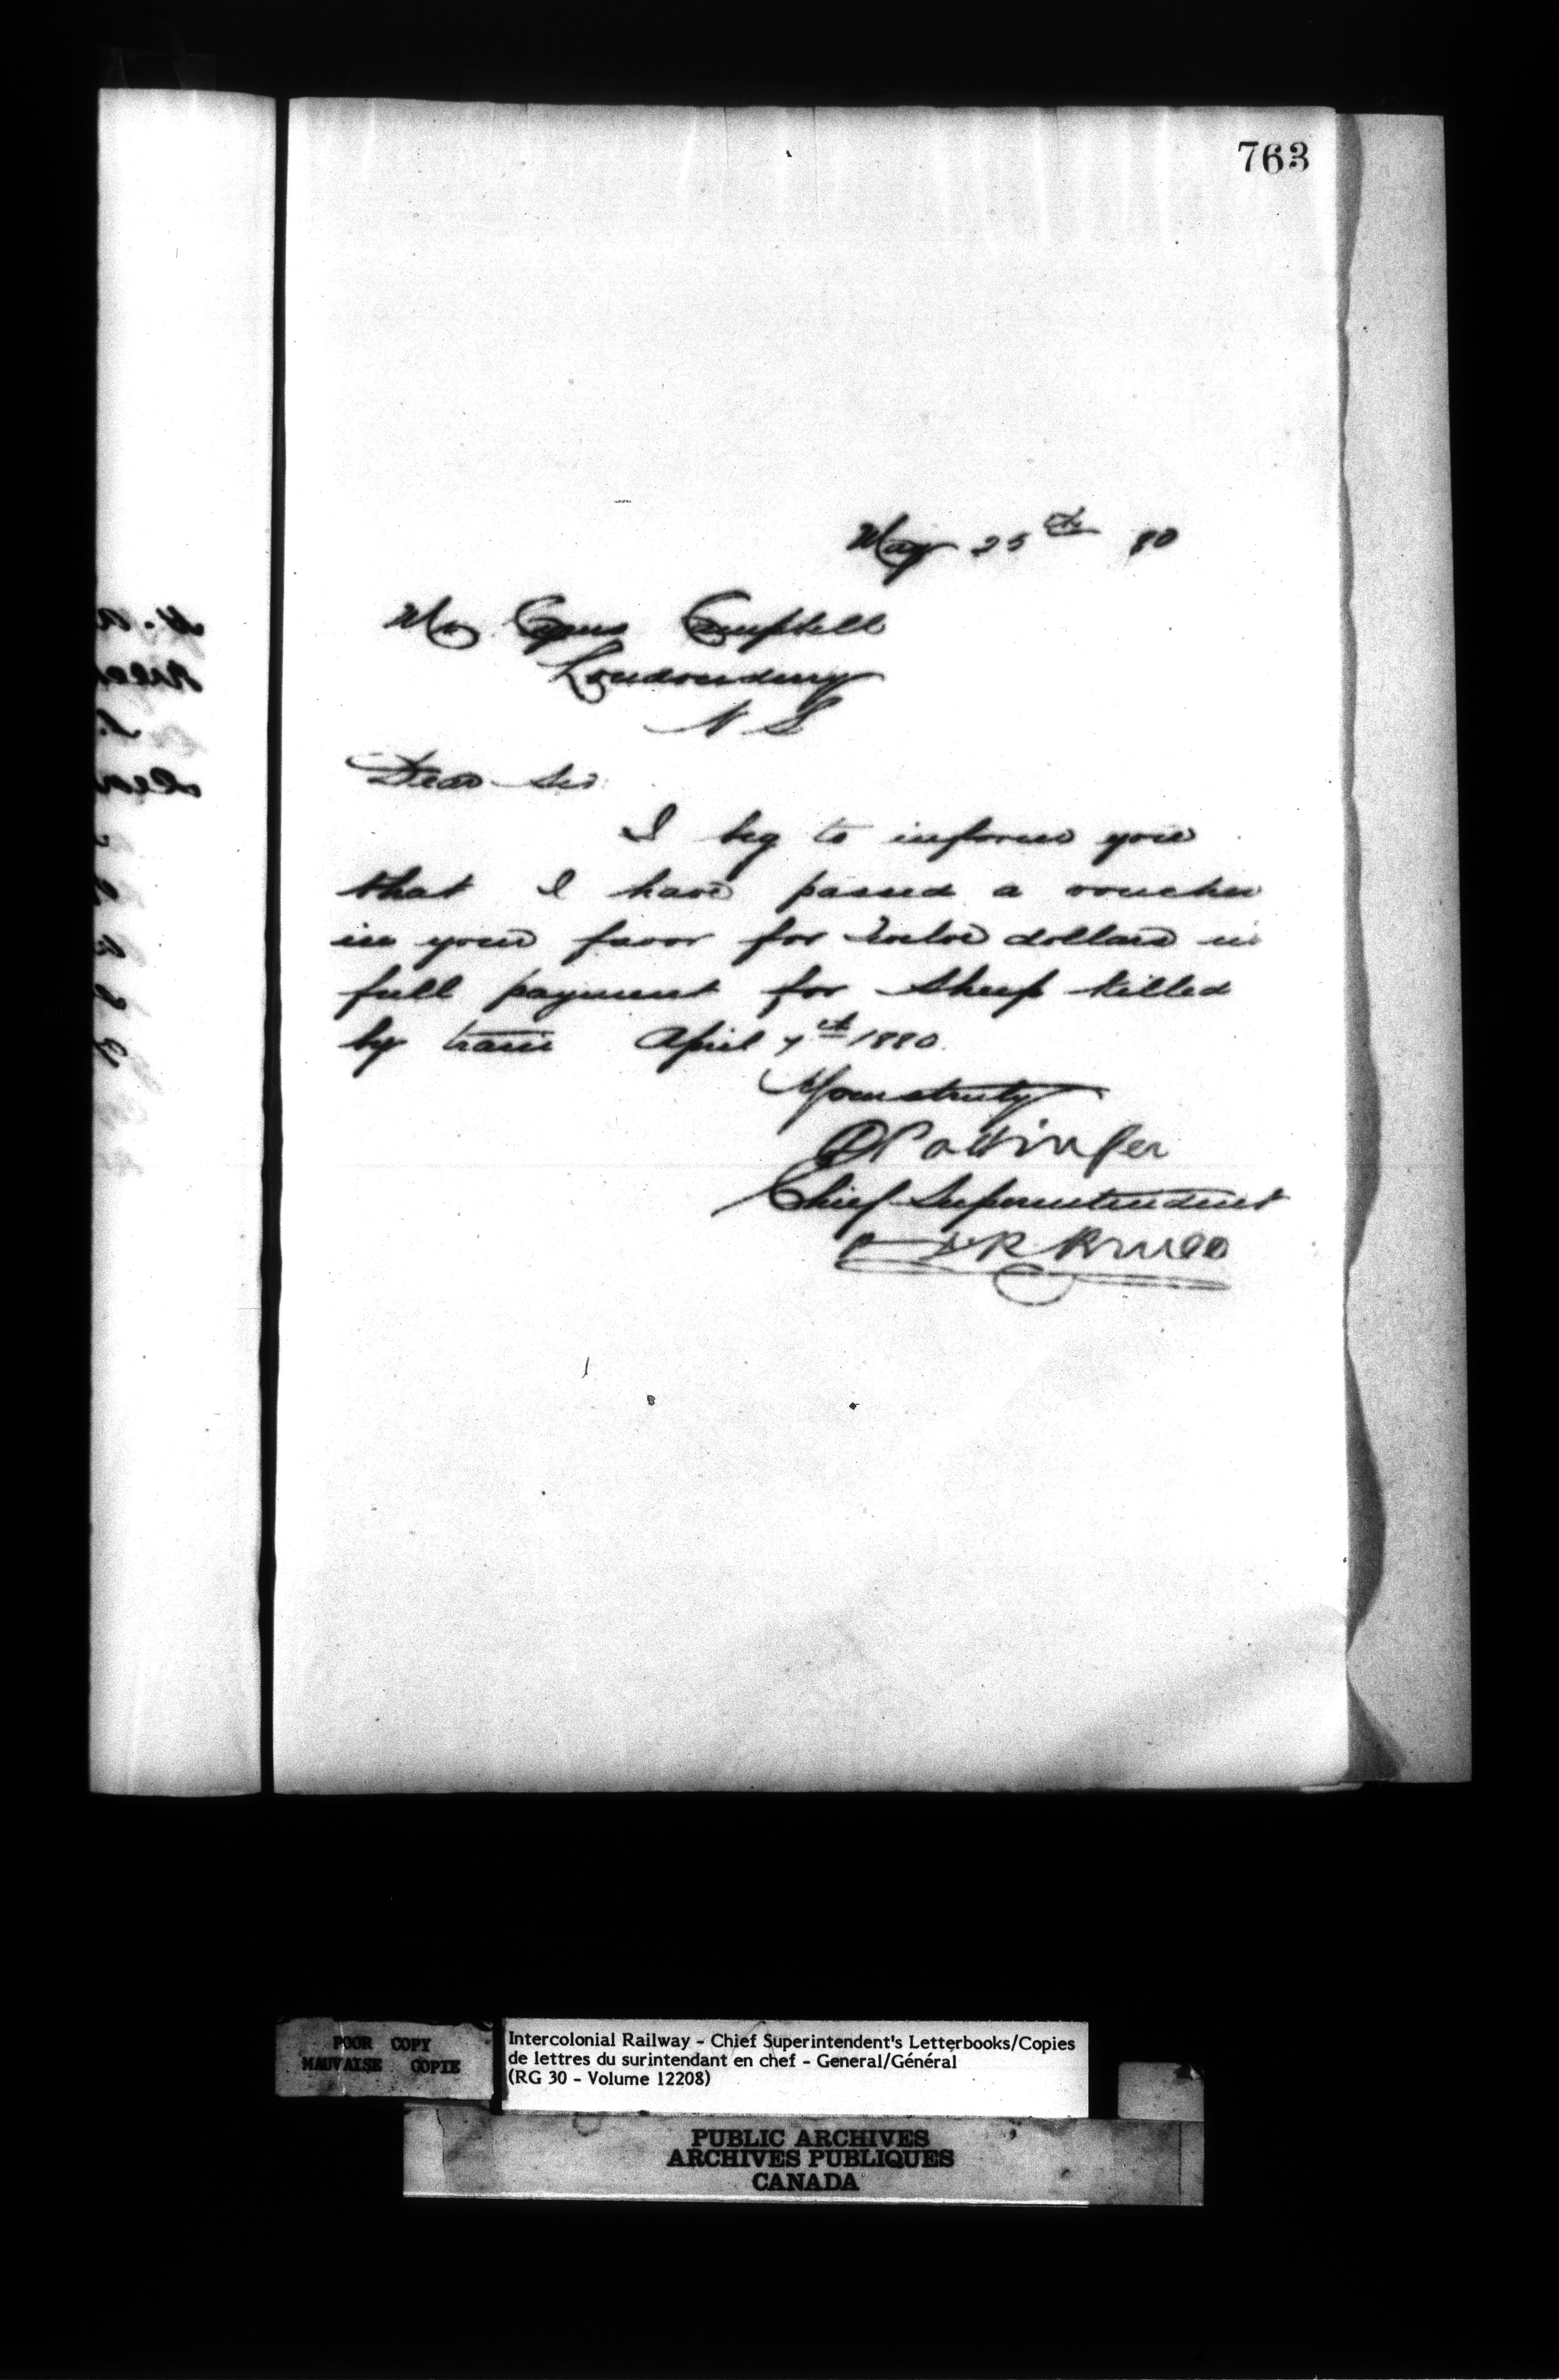 763
May 25th 80
Mr Cyrus Campbell
Londonderry
N S
Dear Sir
I beg to inform you
that I have passed a voucher
in your favor for Twelve dollars in
full payment for Sheep killed
by train April 7th 1880.
Yours truly
D Pottinger
Chief Superintendent
R Bruce
POOR COPY
MAUVAISE COPIE
Intercolonial Railway - Chief Superintendent's Letterbooks/Copies
de lettres du surintendant en chef - General/Général
(RG 30 - Volume 12208)
PUBLIC ARCHIVES
ARCHIVES PUBLIQUES
CANADA